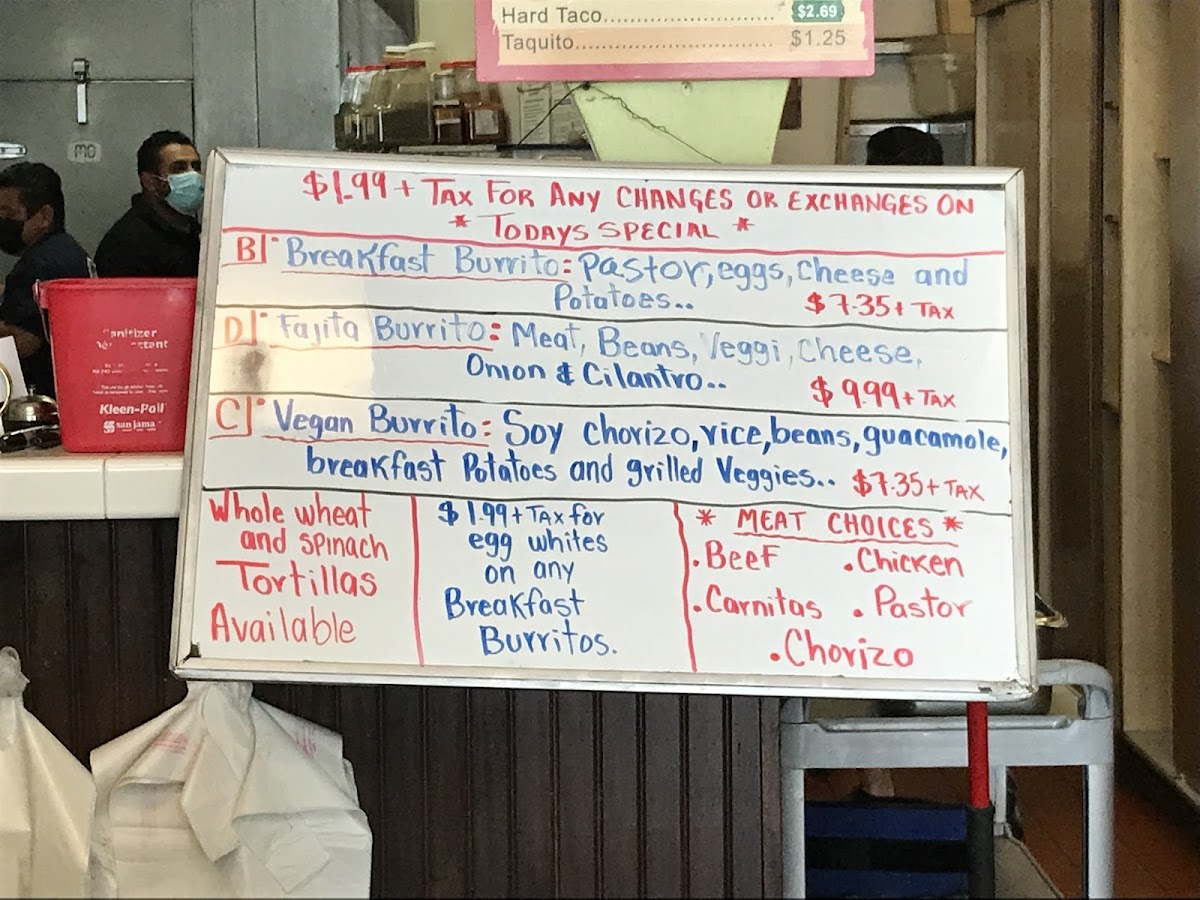 Hard Taco.............................. $2.69
Taquito................................. $1.25
$1.99 + TAX FOR ANY CHANGES OR EXCHANGES ON
* TODAYS SPECIAL *
B) Breakfast Burrito: Pastor, eggs, Cheese and
Potatoes.. $7.35 + TAX
D) Fajita Burrito: Meat, Beans, Veggi, Cheese,
Onion & Cilantro.. $9.99 + TAX
C) Vegan Burrito: Soy chorizo, rice, beans, guacamole,
breakfast Potatoes and grilled Veggies.. $7.35 + TAX
Whole wheat
and spinach
Tortillas
Available
$1.99 + TAX for
egg whites
on any
Breakfast
Burritos.
* MEAT CHOICES *
• Beef • Chicken
• Carnitas • Pastor
• Chorizo
Kleen-Pail
san jamar